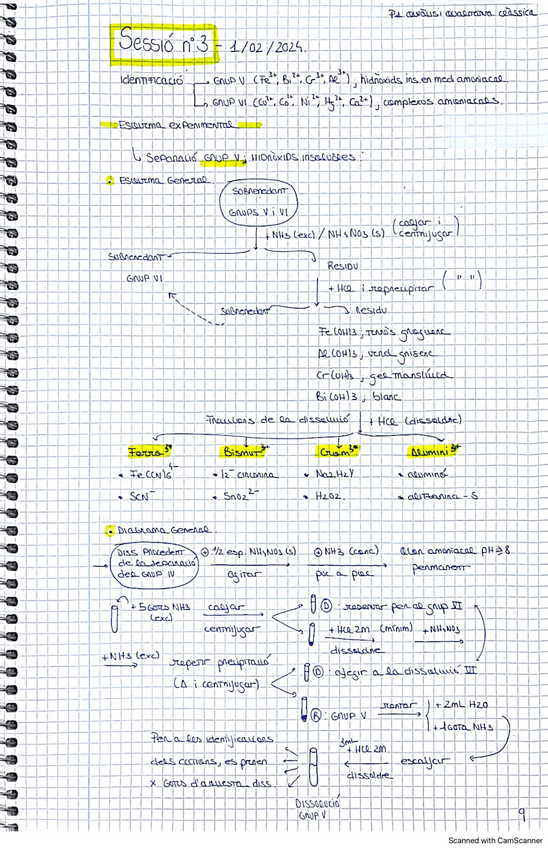 P1 anàlisi qualitativa clàssica
Sessió nº3 - 1/02/2024.
Identificació → GRUP V (Fe³⁺, Bi³⁺, Cr³⁺, Al³⁺), hidròxids ins. en medi amoniacal
→ GRUP VI (Cu²⁺, Co²⁺, Ni²⁺, Hg²⁺, Cd²⁺), complexos amoniacals.
- Esquema experimental
↳ Separació GRUP V: HIDRÒXIDS INSOLUBLES:
• Esquema General.
Sobrenedant
GRUPS V i VI
+ NH3 (exc) / NH4NO3 (s) (calfar i centrifugar)
Sobrenedant
GRUP VI
Residu
+ HCl i reprecipitar (" ")
Sobrenedant
Residu
Fe(OH)3, terròs
Al(OH)3,
Cr(OH)3, gel translúcid
Bi(OH)3, blanc
Fraccions de la dissolució + HCl (dissoldre)
Ferro³⁺ Bismut³⁺ Crom³⁺ Alumini³⁺
• Fe(CN)6⁴⁻ • I2⁻ cinconina • Na2H2Y • aluminó
• SCN⁻ • SnO2²⁻ • H2O2. • alitzarina - S
• Diagrama General.
Diss procedent de la separació del GRUP IV
+ 1/2 esp. NH4NO3 (s)
agitar
+ NH3 (conc)
poc a poc
Olor amoniacal pH ≥ 8
permanent
+ 5 gotes NH3 (exc)
calfar
centrifugar
D: reservar per al grup VI
+ HCl 2M (mínim)
dissoldre
+ NH4NO3
+ NH3 (exc)
repetir precipitació
(Δ i centrifugar)
D: afegir a la dissolució VI
R: GRUP V
rentar
+ 2mL H2O
+ 1 gota NH3
Per a les identificacions
dels cations, es prenen
x gotes d'aquesta diss.
3mL
+ HCl 2M
dissoldre
escalfar
Dissolució
GRUP V
9
Scanned with CamScanner